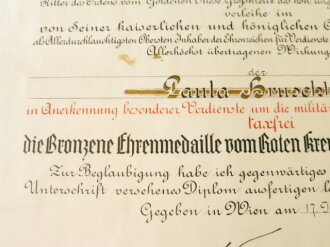 Ritter des Ordens vom Goldenen Vliese, Großkreuz des kön. ung
verleihe im
von Seiner kaiserlichen und königlichen
als Allerdurchlauchtigsten Obersten Inhaber der Ehrenzeichen für Verdienste
Allerhöchst übertragenen Wirkung
der
Paula
in Anerkennung besonderer Verdienste um die militä
taxfrei
die Bronzene Ehrenmedaille vom Roten Kreu
Zur Beglaubigung habe ich gegenwärtiges
Unterschrift versehenes Diplom ausfertigen l
Gegeben in Wien am 17.